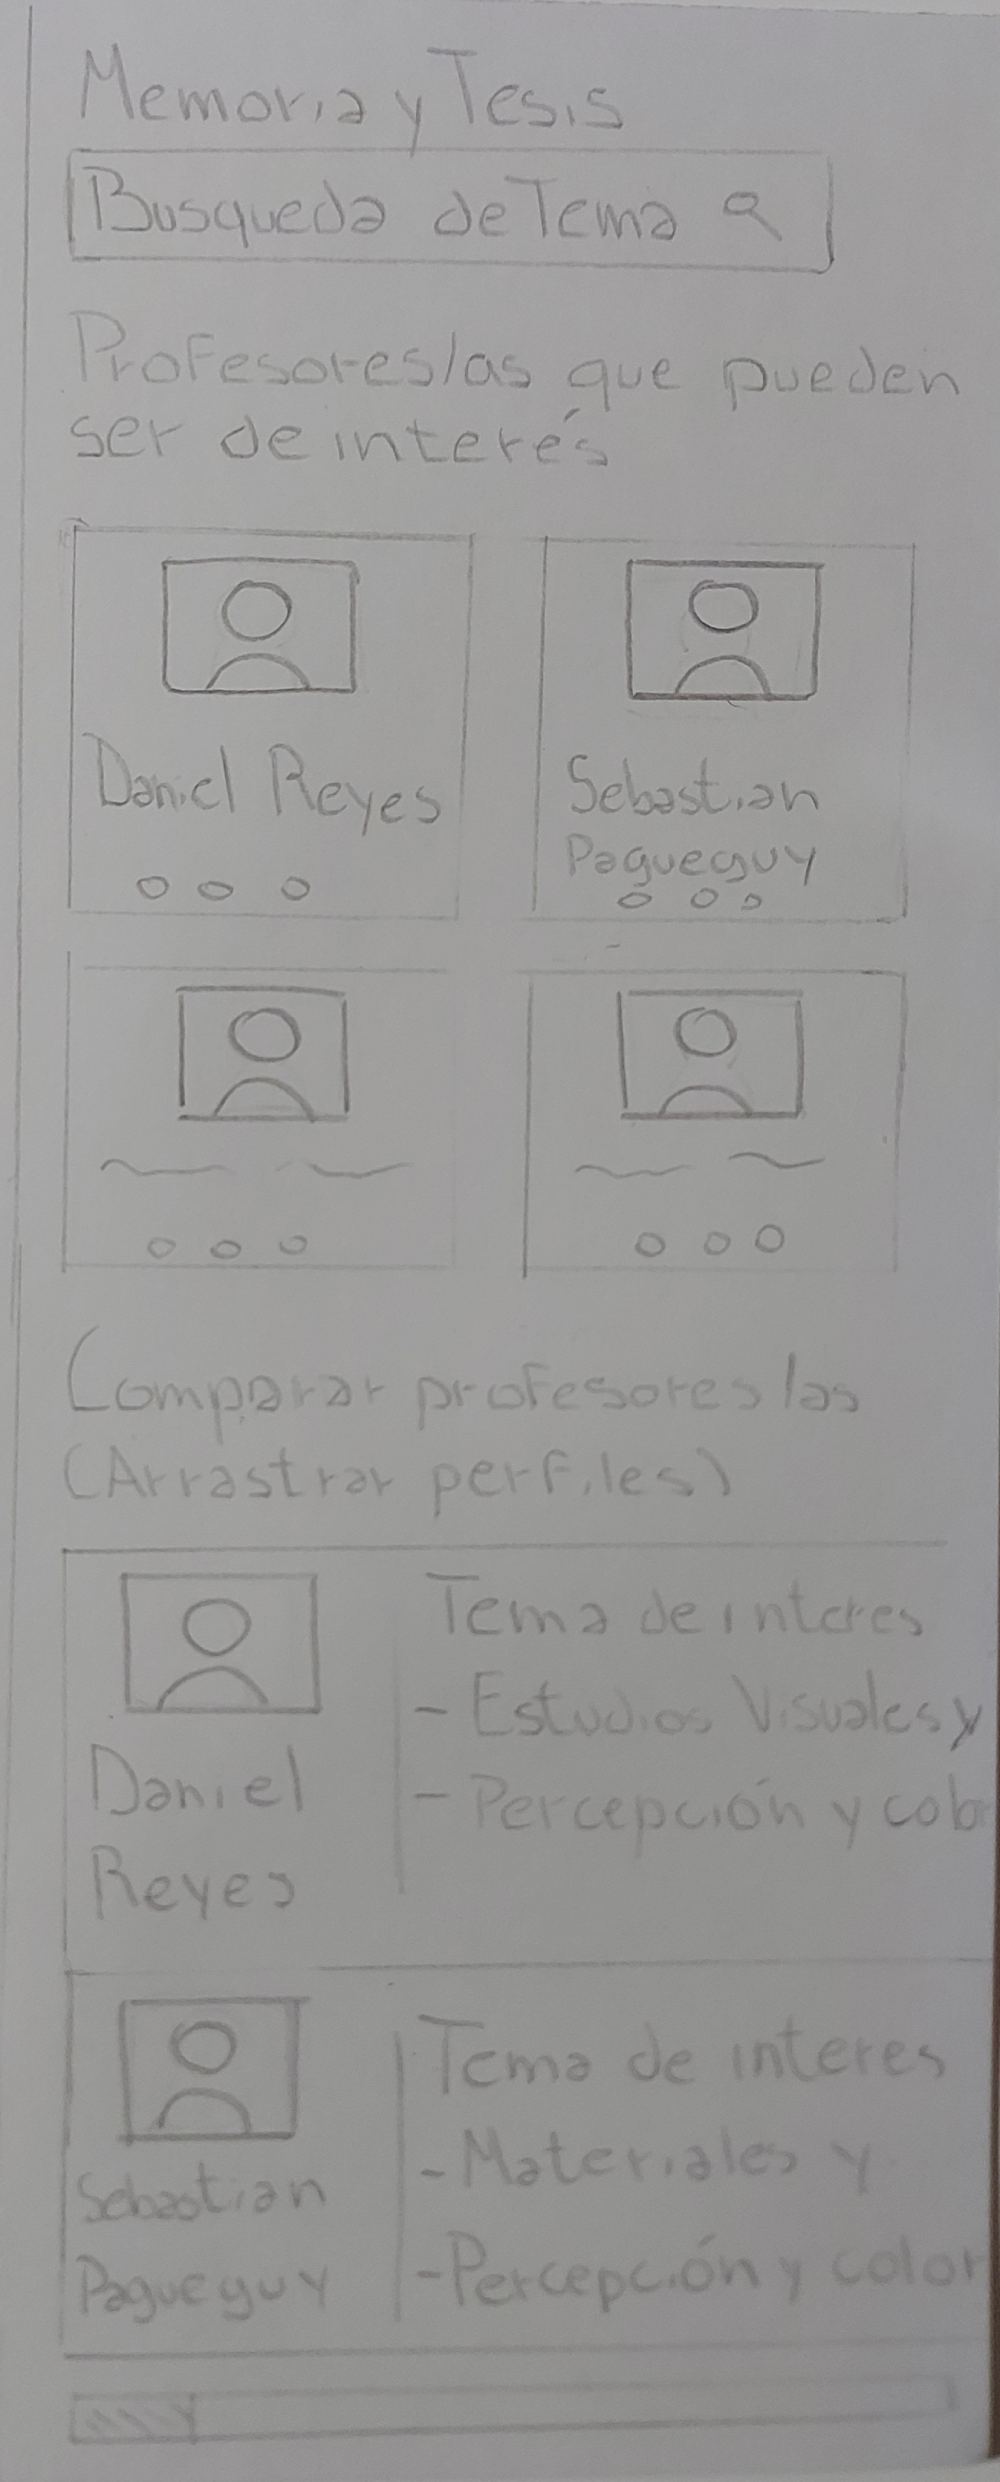 Memoria y Tesis
Busqueda de Tema
Profesores/as que pueden
ser de interés
Daniel Reyes
Sebastian
Pagueguy
Comparar profesores/as
(Arrastrar perfiles)
Tema de interes
- Estudios Visuales y
- Percepción y color
Daniel
Reyes
Tema de interes
- Materiales y
- Percepción y color
Sebastian
Pagueguy